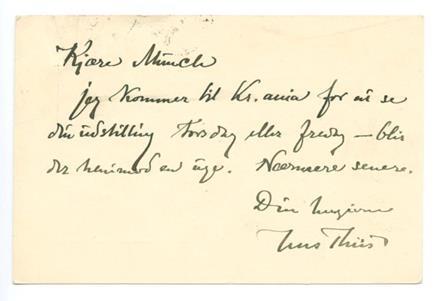 Kjære Munch
jeg kommer til Kr.ania for at se
din udstilling torsdag eller fredag – blir
der henimod en uge. Nærmere senere.
Din hengivne
Jens Thiis